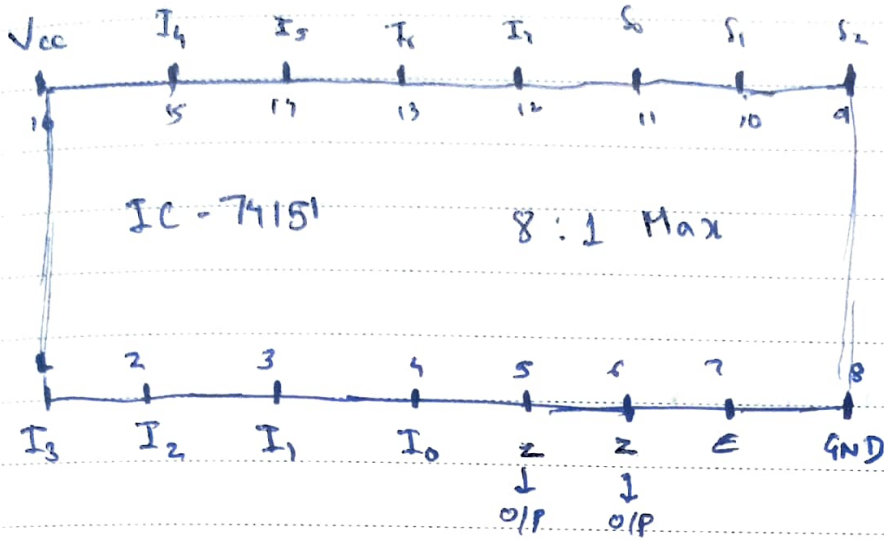 Vcc I4 I5 I6 I7 S0 S1 S2
16 15 14 13 12 11 10 9
IC - 74151 8 : 1 Max
1 2 3 4 5 6 7 8
I3 I2 I1 I0 Z Z E GND
↓ ↓
O/P O/P